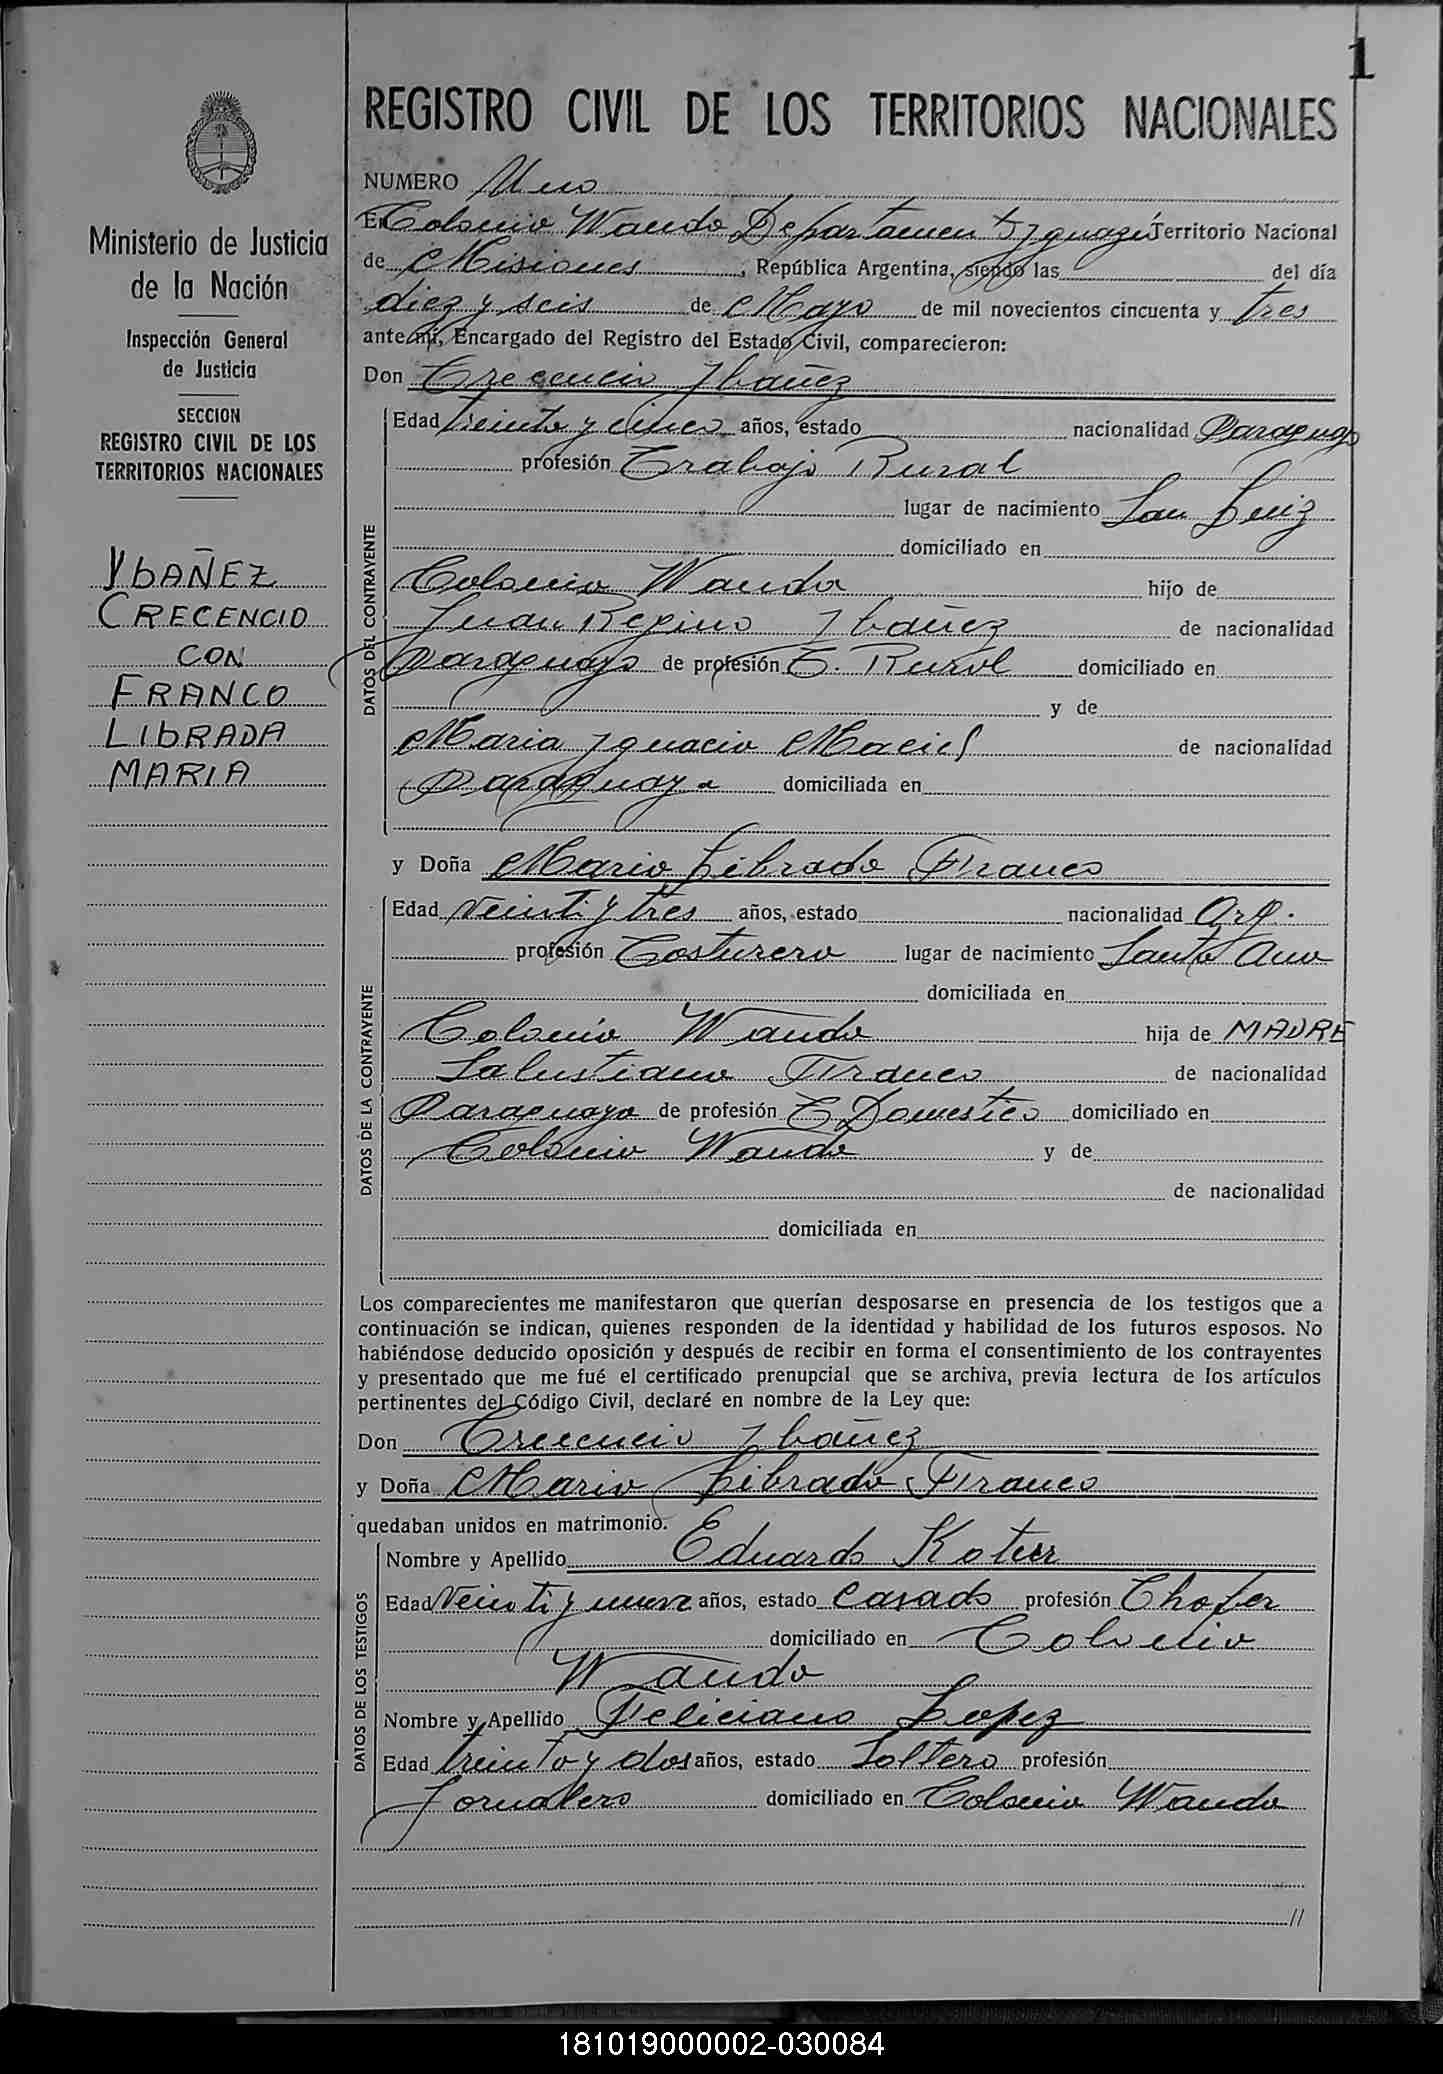 1
REGISTRO CIVIL DE LOS TERRITORIOS NACIONALES
Ministerio de Justicia
de la Nación
Inspección General
de Justicia
SECCION
REGISTRO CIVIL DE LOS
TERRITORIOS NACIONALES
YBAÑEZ
CRECENCIO
CON
FRANCO
LIBRADA
MARIA
NUMERO Uno
En Colonia Wanda Departamento Iguazú Territorio Nacional
de Misiones, República Argentina, siendo las del día
diez y seis de Mayo de mil novecientos cincuenta y tres
ante mí, Encargado del Registro del Estado Civil, comparecieron:
Don Crecencio Ibañez
DATOS DEL CONTRAYENTE
Edad treinta y cinco años, estado nacionalidad Paraguayo
profesión Trabajo Rural
lugar de nacimiento San Luiz
domiciliado en
Colonia Wanda hijo de
Juan Regino Ibañez de nacionalidad
Paraguayo de profesión T. Rural domiciliado en
y de
Maria Ignacia Maciel de nacionalidad
Paraguaya domiciliada en
y Doña Maria Librada Franco
DATOS DE LA CONTRAYENTE
Edad Veinti y tres años, estado nacionalidad Arg.
profesión Costurera lugar de nacimiento Santa Ana
domiciliada en
Colonia Wanda hija de MADRE
Salustiana Franco de nacionalidad
Paraguaya de profesión T Domestico domiciliado en
Colonia Wanda y de
de nacionalidad
domiciliada en
Los comparecientes me manifestaron que querían desposarse en presencia de los testigos que a
continuación se indican, quienes responden de la identidad y habilidad de los futuros esposos. No
habiéndose deducido oposición y después de recibir en forma el consentimiento de los contrayentes
y presentado que me fué el certificado prenupcial que se archiva, previa lectura de los artículos
pertinentes del Código Civil, declaré en nombre de la Ley que:
Don Crecencio Ibañez
y Doña Maria Librada Franco
quedaban unidos en matrimonio.
DATOS DE LOS TESTIGOS
Nombre y Apellido Eduardo
Edad Veinti y nueve años, estado Casado profesión Chofer
domiciliado en Colonia
Wanda
Nombre y Apellido Feliciano Lopez
Edad treinta y dos años, estado Soltero profesión
Jornalero domiciliado en Colonia Wanda
//
181019000002-030084